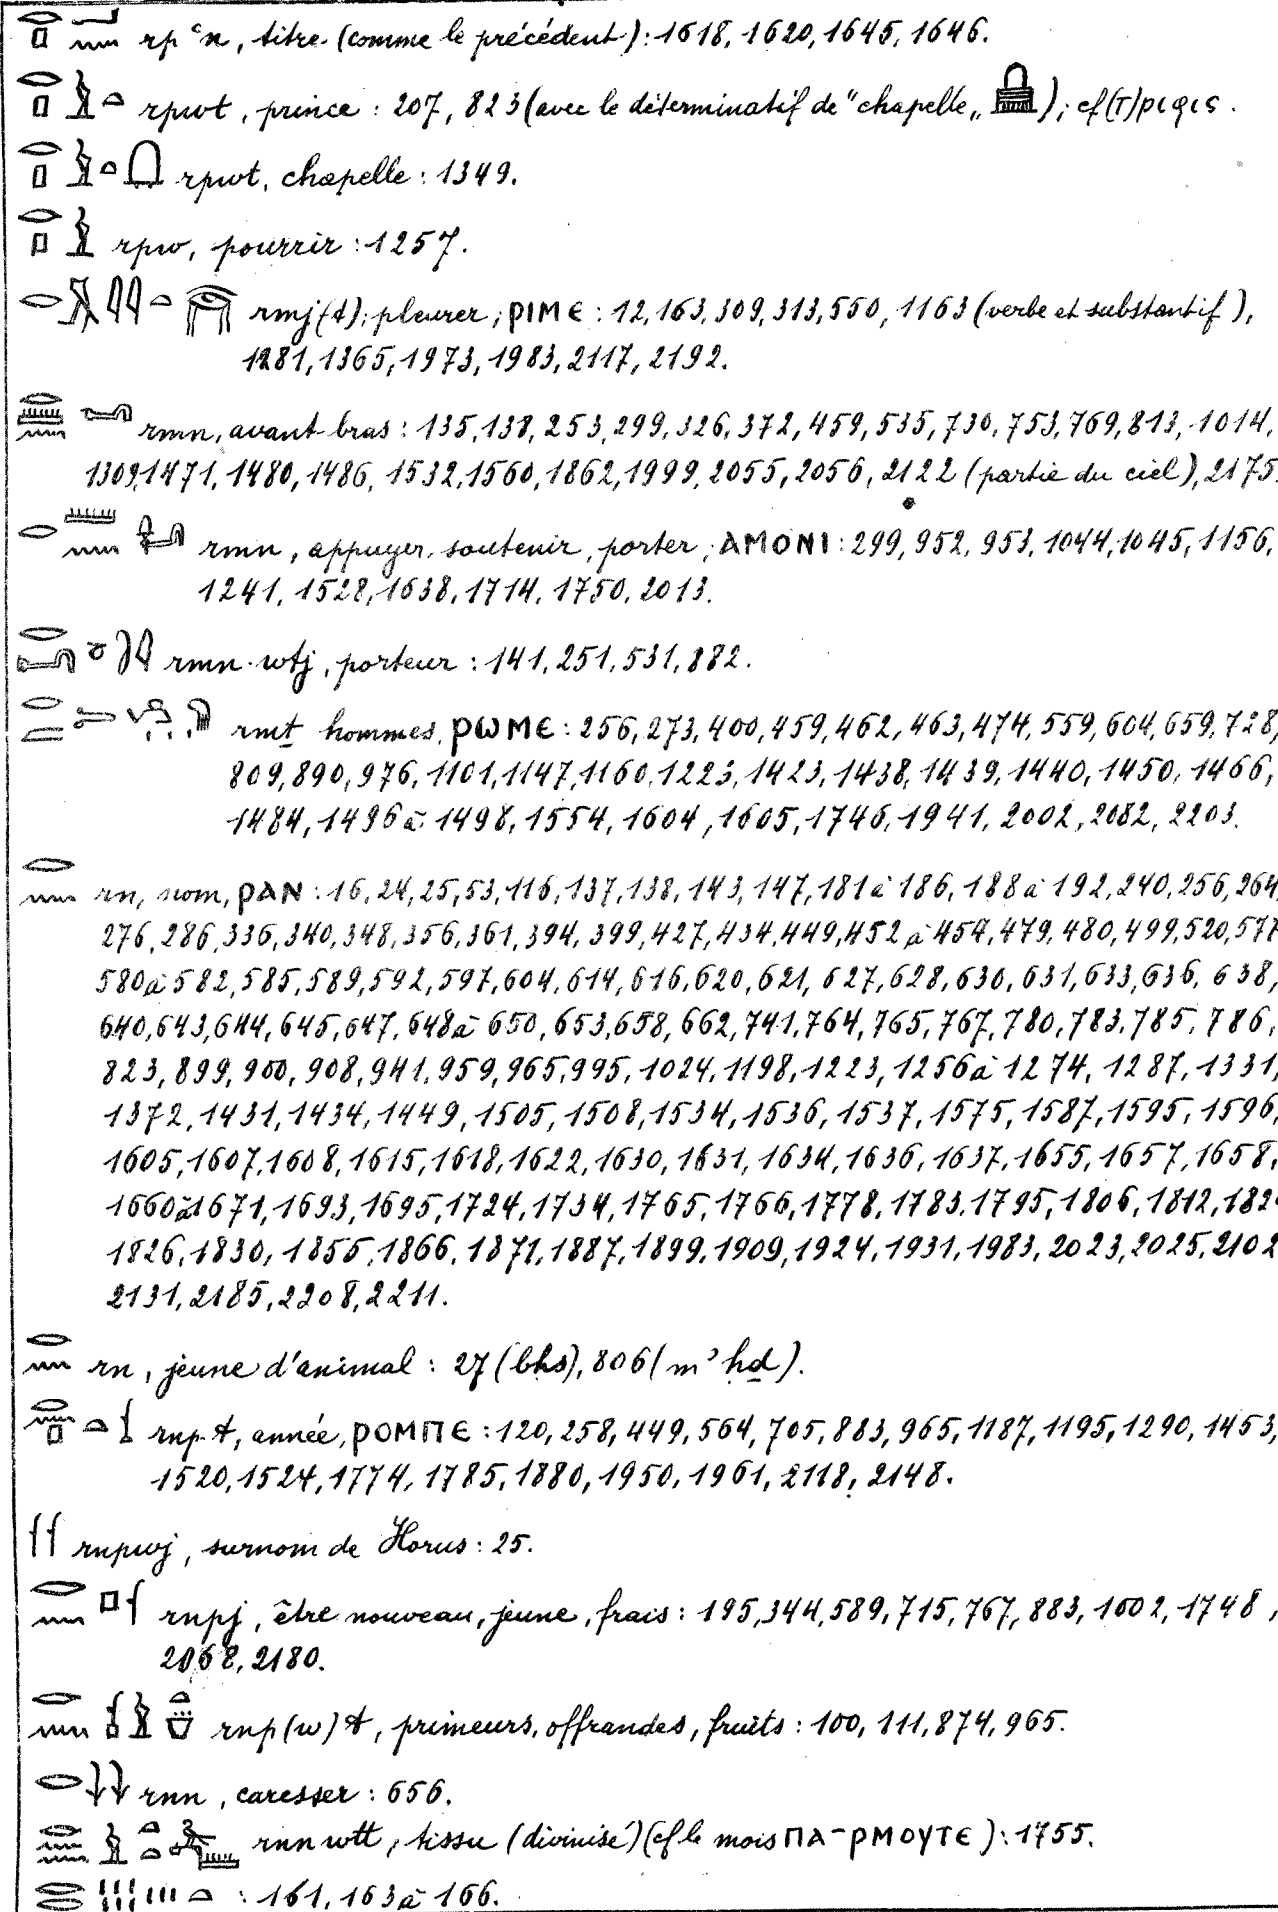 rpꜥn, titre (comme le précédent): 1618, 1620, 1645, 1646.
rpwt, prince : 207, 823 (avec le déterminatif de "chapelle„ ); cf (T)ριφις.
rpwt, chapelle : 1349.
rpw, pourrir : 1257.
rmj(t); pleurer; ⲣⲓⲙⲉ : 12, 163, 309, 313, 550, 1163 (verbe et substantif),
1281, 1365, 1973, 1983, 2117, 2192.
rmn, avant bras : 135, 138, 253, 299, 326, 372, 459, 535, 730, 753, 769, 813, 1014,
1309, 1471, 1480, 1486, 1532, 1560, 1862, 1999, 2055, 2056, 2122 (partie du ciel), 2175.
rmn, appuyer, soutenir, porter, ⲁⲙⲟⲛⲓ : 299, 952, 953, 1044, 1045, 1156,
1241, 1528, 1638, 1714, 1750, 2013.
rmn.wtj, porteur : 141, 251, 531, 882.
rmṯ hommes, ⲣⲱⲙⲉ : 256, 273, 400, 459, 462, 463, 474, 559, 604, 659, 728,
809, 890, 976, 1101, 1147, 1160, 1223, 1423, 1438, 1439, 1440, 1450, 1466,
1484, 1496 à 1498, 1554, 1604, 1605, 1746, 1941, 2002, 2082, 2203.
rn, nom, ⲣⲁⲛ : 16, 24, 25, 53, 116, 137, 138, 143, 147, 181 à 186, 188 à 192, 240, 256, 264,
276, 286, 336, 340, 348, 356, 361, 394, 399, 427, 434, 449, 452 à 454, 479, 480, 499, 520, 577
580 à 582, 585, 589, 592, 597, 604, 614, 616, 620, 621, 627, 628, 630, 631, 633, 636, 638,
640, 643, 644, 645, 647, 648 à 650, 653, 658, 662, 741, 764, 765, 767, 780, 783, 785, 786,
823, 899, 900, 908, 941, 959, 965, 995, 1024, 1198, 1223, 1256 à 1274, 1287, 1331,
1372, 1431, 1434, 1449, 1505, 1508, 1534, 1536, 1537, 1575, 1587, 1595, 1596,
1605, 1607, 1608, 1615, 1618, 1622, 1630, 1631, 1634, 1636, 1637, 1655, 1657, 1658,
1660 à 1671, 1693, 1695, 1724, 1734, 1765, 1766, 1778, 1783, 1795, 1806, 1812,
1826, 1830, 1855, 1866, 1871, 1887, 1899, 1909, 1924, 1931, 1983, 2023, 2025, 2102
2131, 2185, 2208, 2211.
rn, jeune d'animal : 27 (bḥs), 806 (mꜣ ḥḏ).
rnp.t, année, ⲣⲟⲙⲡⲉ : 120, 258, 449, 564, 705, 883, 965, 1187, 1195, 1290, 1453,
1520, 1524, 1774, 1785, 1880, 1950, 1961, 2118, 2148.
rnpwj, surnom de Horus : 25.
rnpj, être nouveau, jeune, frais : 195, 344, 589, 715, 767, 883, 1602, 1748,
2068, 2180.
rnp(w)t, primeurs, offrandes, fruits : 100, 111, 874, 965.
rnn, caresser : 656.
rnn wtt, tissu (divinisé) (cf le mois ⲡⲁ-ⲣⲙⲟⲩⲧⲉ) : 1755.
: 161, 163 à 166.